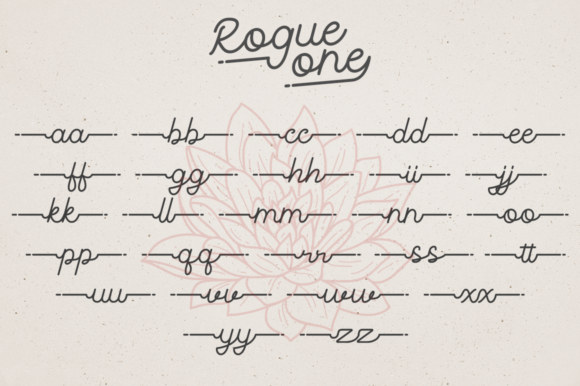 Rogue
one
aa bb cc dd ee
ff gg hh ii jj
kk ll mm nn oo
pp qq rr ss tt
uu vv ww xx
yy zz